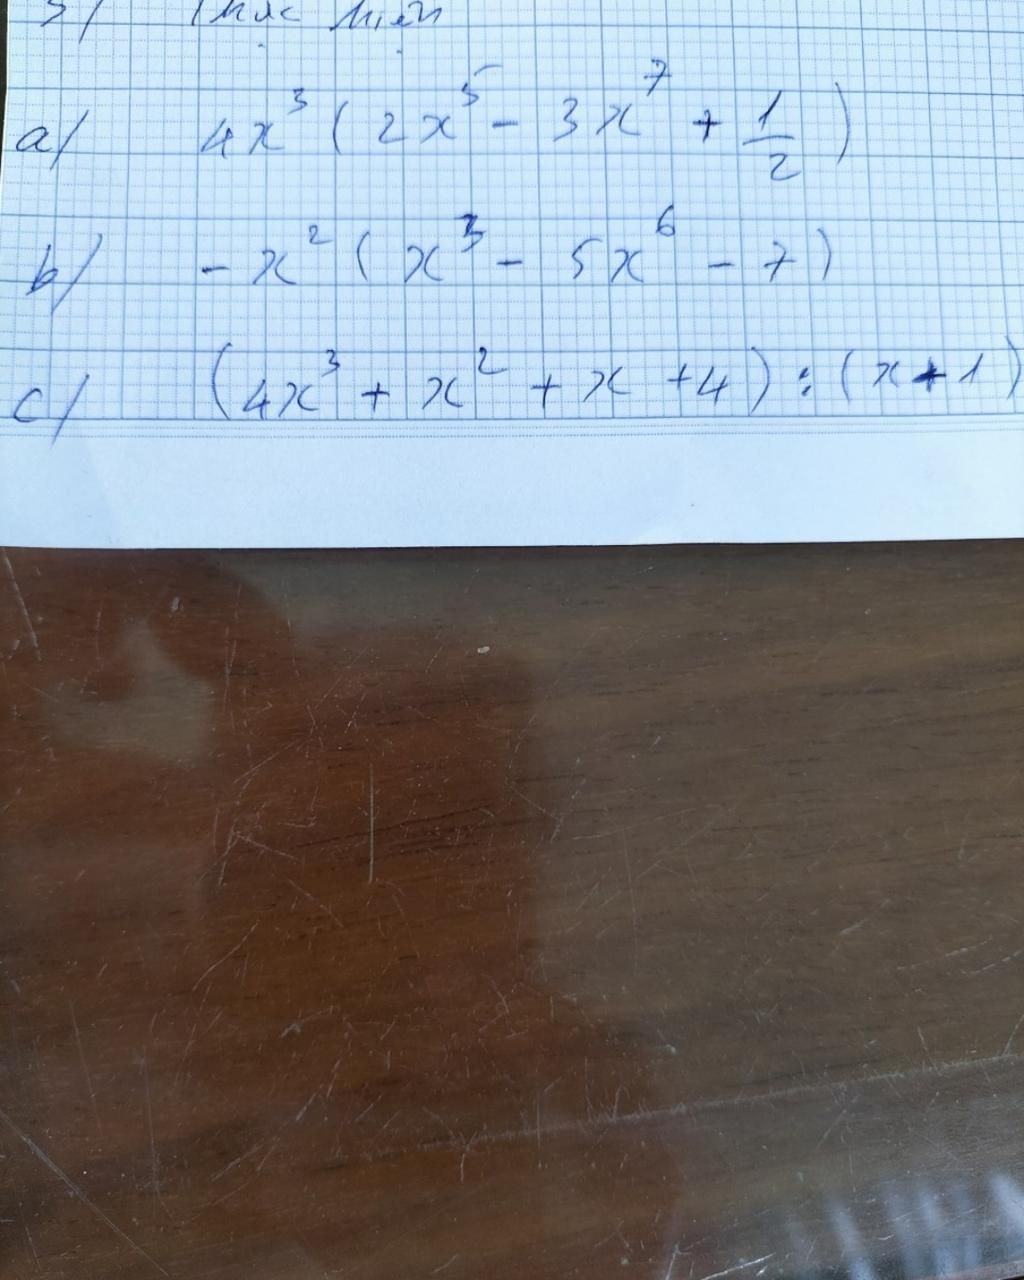 3/ Thực hiện
a/ 4x³ ( 2x⁵ - 3x⁷ + 1/2 )
b/ - x² ( x³ - 5x⁶ - 7 )
c/ ( 4x³ + x² + x + 4 ) : ( x + 1 )